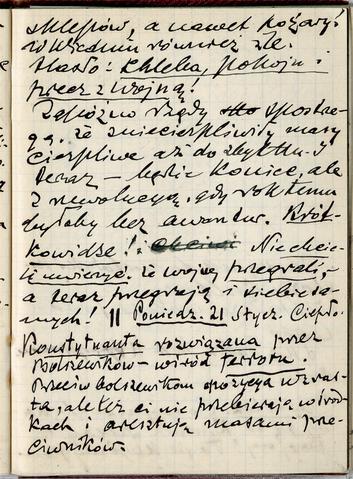 sklepów, a nawet pożary!
W Wiedniu również źle.
Hasło: chleba, pokoju i
precz z wojną!
Zapóźno rządy spostrze-
gą, że zniecierpliwiły masy
cierpliwe aż do zbytku. I
teraz – będzie koniec, ale
z rewolucyą, gdy rok temu
byłaby bez awantur. Krót-
kowidze! Niechcie-
li wierzyć, że wojnę przegrali,
a teraz przegrają i siebie sa-
mych! || Poniedz. 21 stycz. Ciepło.
Konstytuanta rozwiązana przez
bolszewików – wśród terroru.
Przeciw bolszewikom opozycya wzras-
ta, ale też ci nie przebierają w środ-
kach i aresztują masami prze-
ciwników.